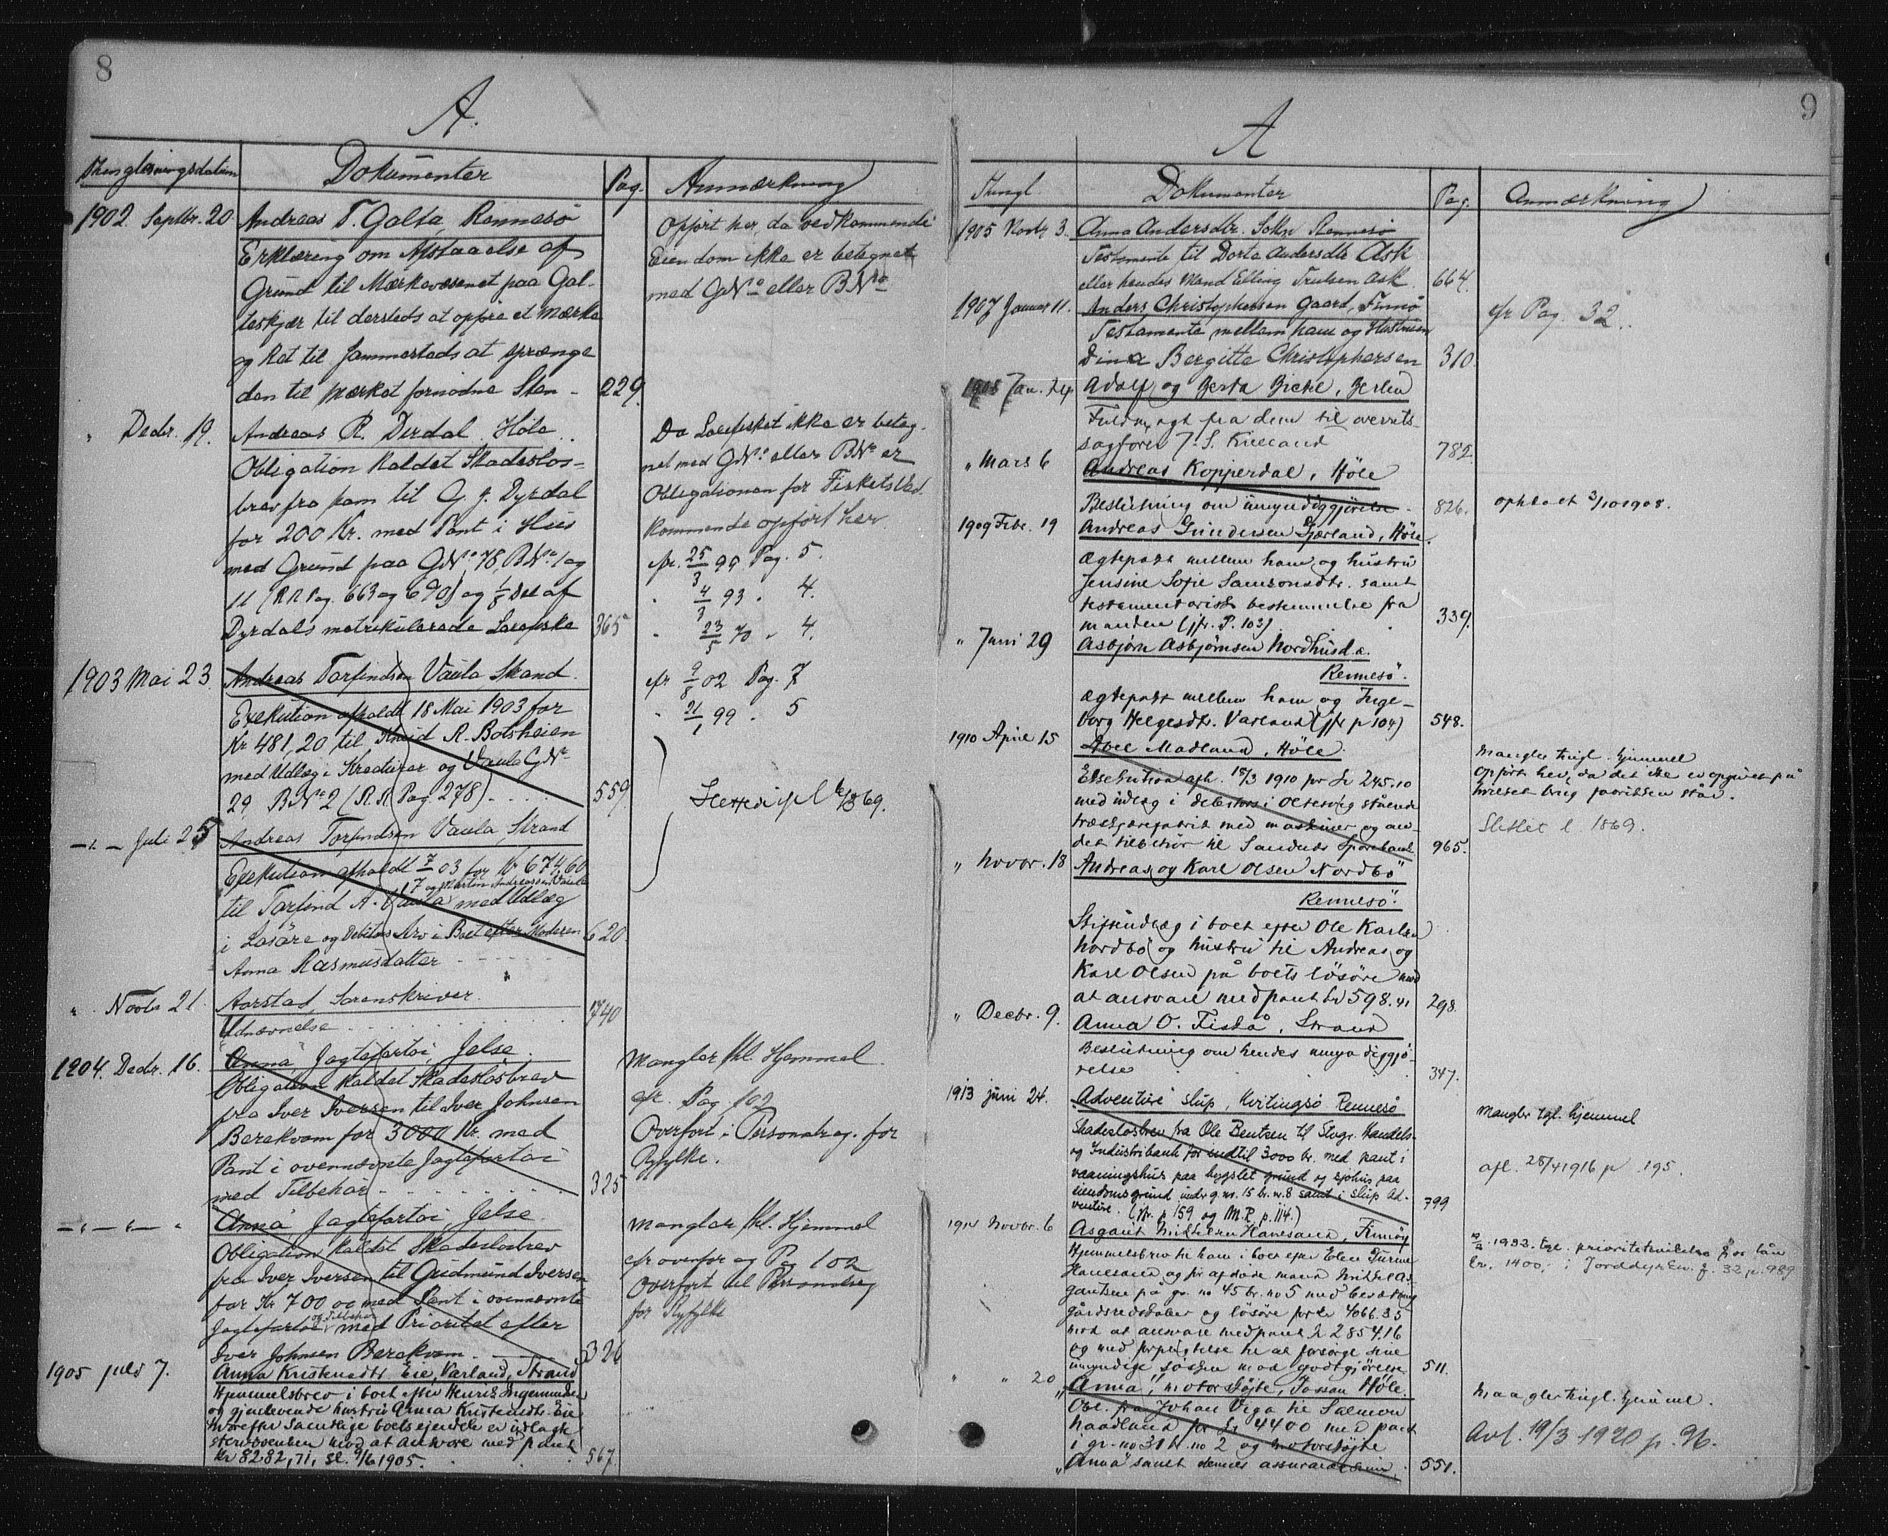 8
A.
Thinglæsningsdatum Dokumenter Pag. Anmærkning
1902. Septbr. 20 Andreas T. Galta, Rennesö
Erklæring om Afstaaelse af
Grund til Mærkevæsenet paa Gal-
teskjær til dersteds at opføre et Mærke
og Ret til sammesteds at sprænge
den til Mærket fornødne Sten - 229.
Opført her, da vedkommende
Eiendom ikke er betegnet
med GNo eller BNo
" Decbr. 19. Andreas R. Dirdal, Höle
Obligation kaldet Skadeslös-
brev fra ham til G. J. Dyrdal
for 200 Kr. med Pant i Hus
med Grund paa GNo 78, BNo 1 og
11 (R.R. Pag. 663 og 690) og 1/8 Del af
Dyrdals matrikulerede Laxefiske 365
Da Laxefisket ikke er beteg-
net med GNo eller BNo er
Obligationen for Fisket
kommende opført her.
cfr. 25/3 99 Pag. 5.
" 4/3 93 " 4.
" 23/5 70 " 4.
1903 Mai 23. Andreas Torfindsen Vaula, Strand.
Exekution afholdt 18 Mai 1903 for
Kr 481,20 til Knud R. Bolsheien
med Udlæg i Kreaturer og Vaula GNo
29 BNo 2 (R.R. Pag 278) 559
cfr 9/8 02 Pag. 7
" 21/1 99 " 5
Slettes ifl l 1869.
— " — Juli 25 Andreas Torfindsen Vaula, Strand
Exekution afholdt 7/7 03 for Kr 674,60
og Martin Andreassen Vaula
til Torfind A. Vaula med Udlæg
i Løsøre og Debitors Arv i Boet efter Moderen 620.
Anna Rasmusdatter
" Novbr 21. Aarstad, Sorenskriver
Udnævnelse 740
1904. Decbr. 16. "Anna" Jagtefartöi, Jelse.
Obligation kaldet Skadeslösbrev
fra Iver Iversen til Iver Johnsen
Berekvam for 3000 Kr. med
Pant i ovennævnte Jagtefartöi
med Tilbehör 325
Mangler thl. Hjemmel
cfr. Pag 102
Overfört i Personalreg. for
Ryfylke.
— " — " — " "Anna" Jagtefartöi, Jelse.
Obligation kaldet Skadeslösbrev
fra Iver Iversen til Gudmund Iversen
for Kr 700 00 med Pant i ovennævnte
Jagtefartöi og Tilbehør med Prioritet efter
Iver Johnsen Berekvam. 326
Mangler thl. Hjemmel
cfr overfor og Pag 102
Overfört til Personalreg
for Ryfylke
1905 juli 7. Anna Kristensdtr Eie, Varland, Strand
Hjemmelsbrev i boet efter Henrik Ingemundsen
og gjenlevende hustru Anna Kristensdtr. Eie
hvorefter samtlige boets eiendele er udlagt
sterboenken mod at ansvare med pant
Kr 8282,71, sl. 9/6 1905. 567.
9
A
Thingl. Dokumenter Pag. Anmærkning
1905 Novbr 3. Anna Andersdtr. Sokn Rennesö
Testamente til Dorta Andersdtr Ask
eller hendes Mand Elling Trulsen Ask. 664.
1907 Januar 11. Anders Christophersen Gaard, Finnö
Testamente mellem ham og Hustruen
Dina Bergitte Christophersen 310
cfr Pag. 32.
1908 Jan. 24 Adolf og Berta Bickel, Berlin
Fuldmagt fra dem til overrets-
sagfører J. S. Kielland 782.
" Mars 6 Andreas Kopperdal, Höle
Beslutning om umyndiggjörelse 826. ophævet 3/10 1908.
1909 Febr. 19 Andreas Gundersen Gjærland, Höle.
Ægtepakt mellem ham og hustru
Jensine Sofie Samsonsdtr. samt
testamentarisk bestemmelse fra
manden (jfr. P. 103) 339.
" Juni 29 Asbjørn Asbjørnsen Nordhus d.æ.
Rennesö.
Ægtepakt mellem ham og Inge-
borg Helgesdtr. Varland (jfr p 104) 548.
1910 April 15 Madland, Höle.
Eksekution afh. 18/3 1910 for kr 245.10
med udlæg i debitors i Oltesvig stående
træskjærefabrik med maskiner og an-
det tilbehør til Sandnes Sparebank 965.
Mangler tingl. hjemmel
Opført her, da det ikke er opgivet på
hvilket brug fabrikken står.
Slettet l. 1869.
" Novbr. 18 Andreas og Karl Olsen Nordbö
Rennesö.
Skifteudlæg i boet efter Ole Karlsen
Nordbö og hustru til Andreas og
Karl Olsen på boets løsøre mod
at ansvare med pant kr 598.41 298.
" Decbr. 9. Anna O. Fiskå, Strand
Beslutning om hendes umyndiggjö-
relse 347.
1913 juni 24. Adventure slup, Kvitingsö Rennesö
Skadeslosbrev fra Ole Bentsen til Stvgr. Handels-
og Industribank for indtil 3000 kr. med pant i
vaaningshus paa bygslet grund og sjøhus paa
eiendomsgrund under g.nr. 15 br.nr. 8 samt i slup Ad-
venture. (jfr. p 159 og M.R. p. 114.) 799
Mangler tgl. hjemmel
afl. 28/4 1916 p. 195.
1914 Novbr. 6 Asgaut Mikkelsen Hanesand, Finnöy
Hjemmelsbrev til ham i boet efter Elen Turine
Hanesand og før afdøde mand Mikkel As-
gautsen på gr. no 45 br. no 5 med besætning
gårdsredskaber og løsöre for kr 4066.35
mod at ansvare med pant kr 2854.16
og med forpligtelse til at forsørge sine
umyndige søsken mod godtgjörelse 511.
1933. tgl. prioritetsvikelse for lån
kr. 1400, i Jorddyrkn. f. 32 p. 989
" " 20 "Anna", motorskøjte, Fossan Höle.
Obl. fra Johan Viga til Salmon
Naadland for kr 4400 med pant
i gr. no 31 br. no 2 og motorskøjte
"Anna" samt dennes assurancesum. 551.
Mangler tingl. hjemmel.
Avl. 19/3 1920 p. 96.